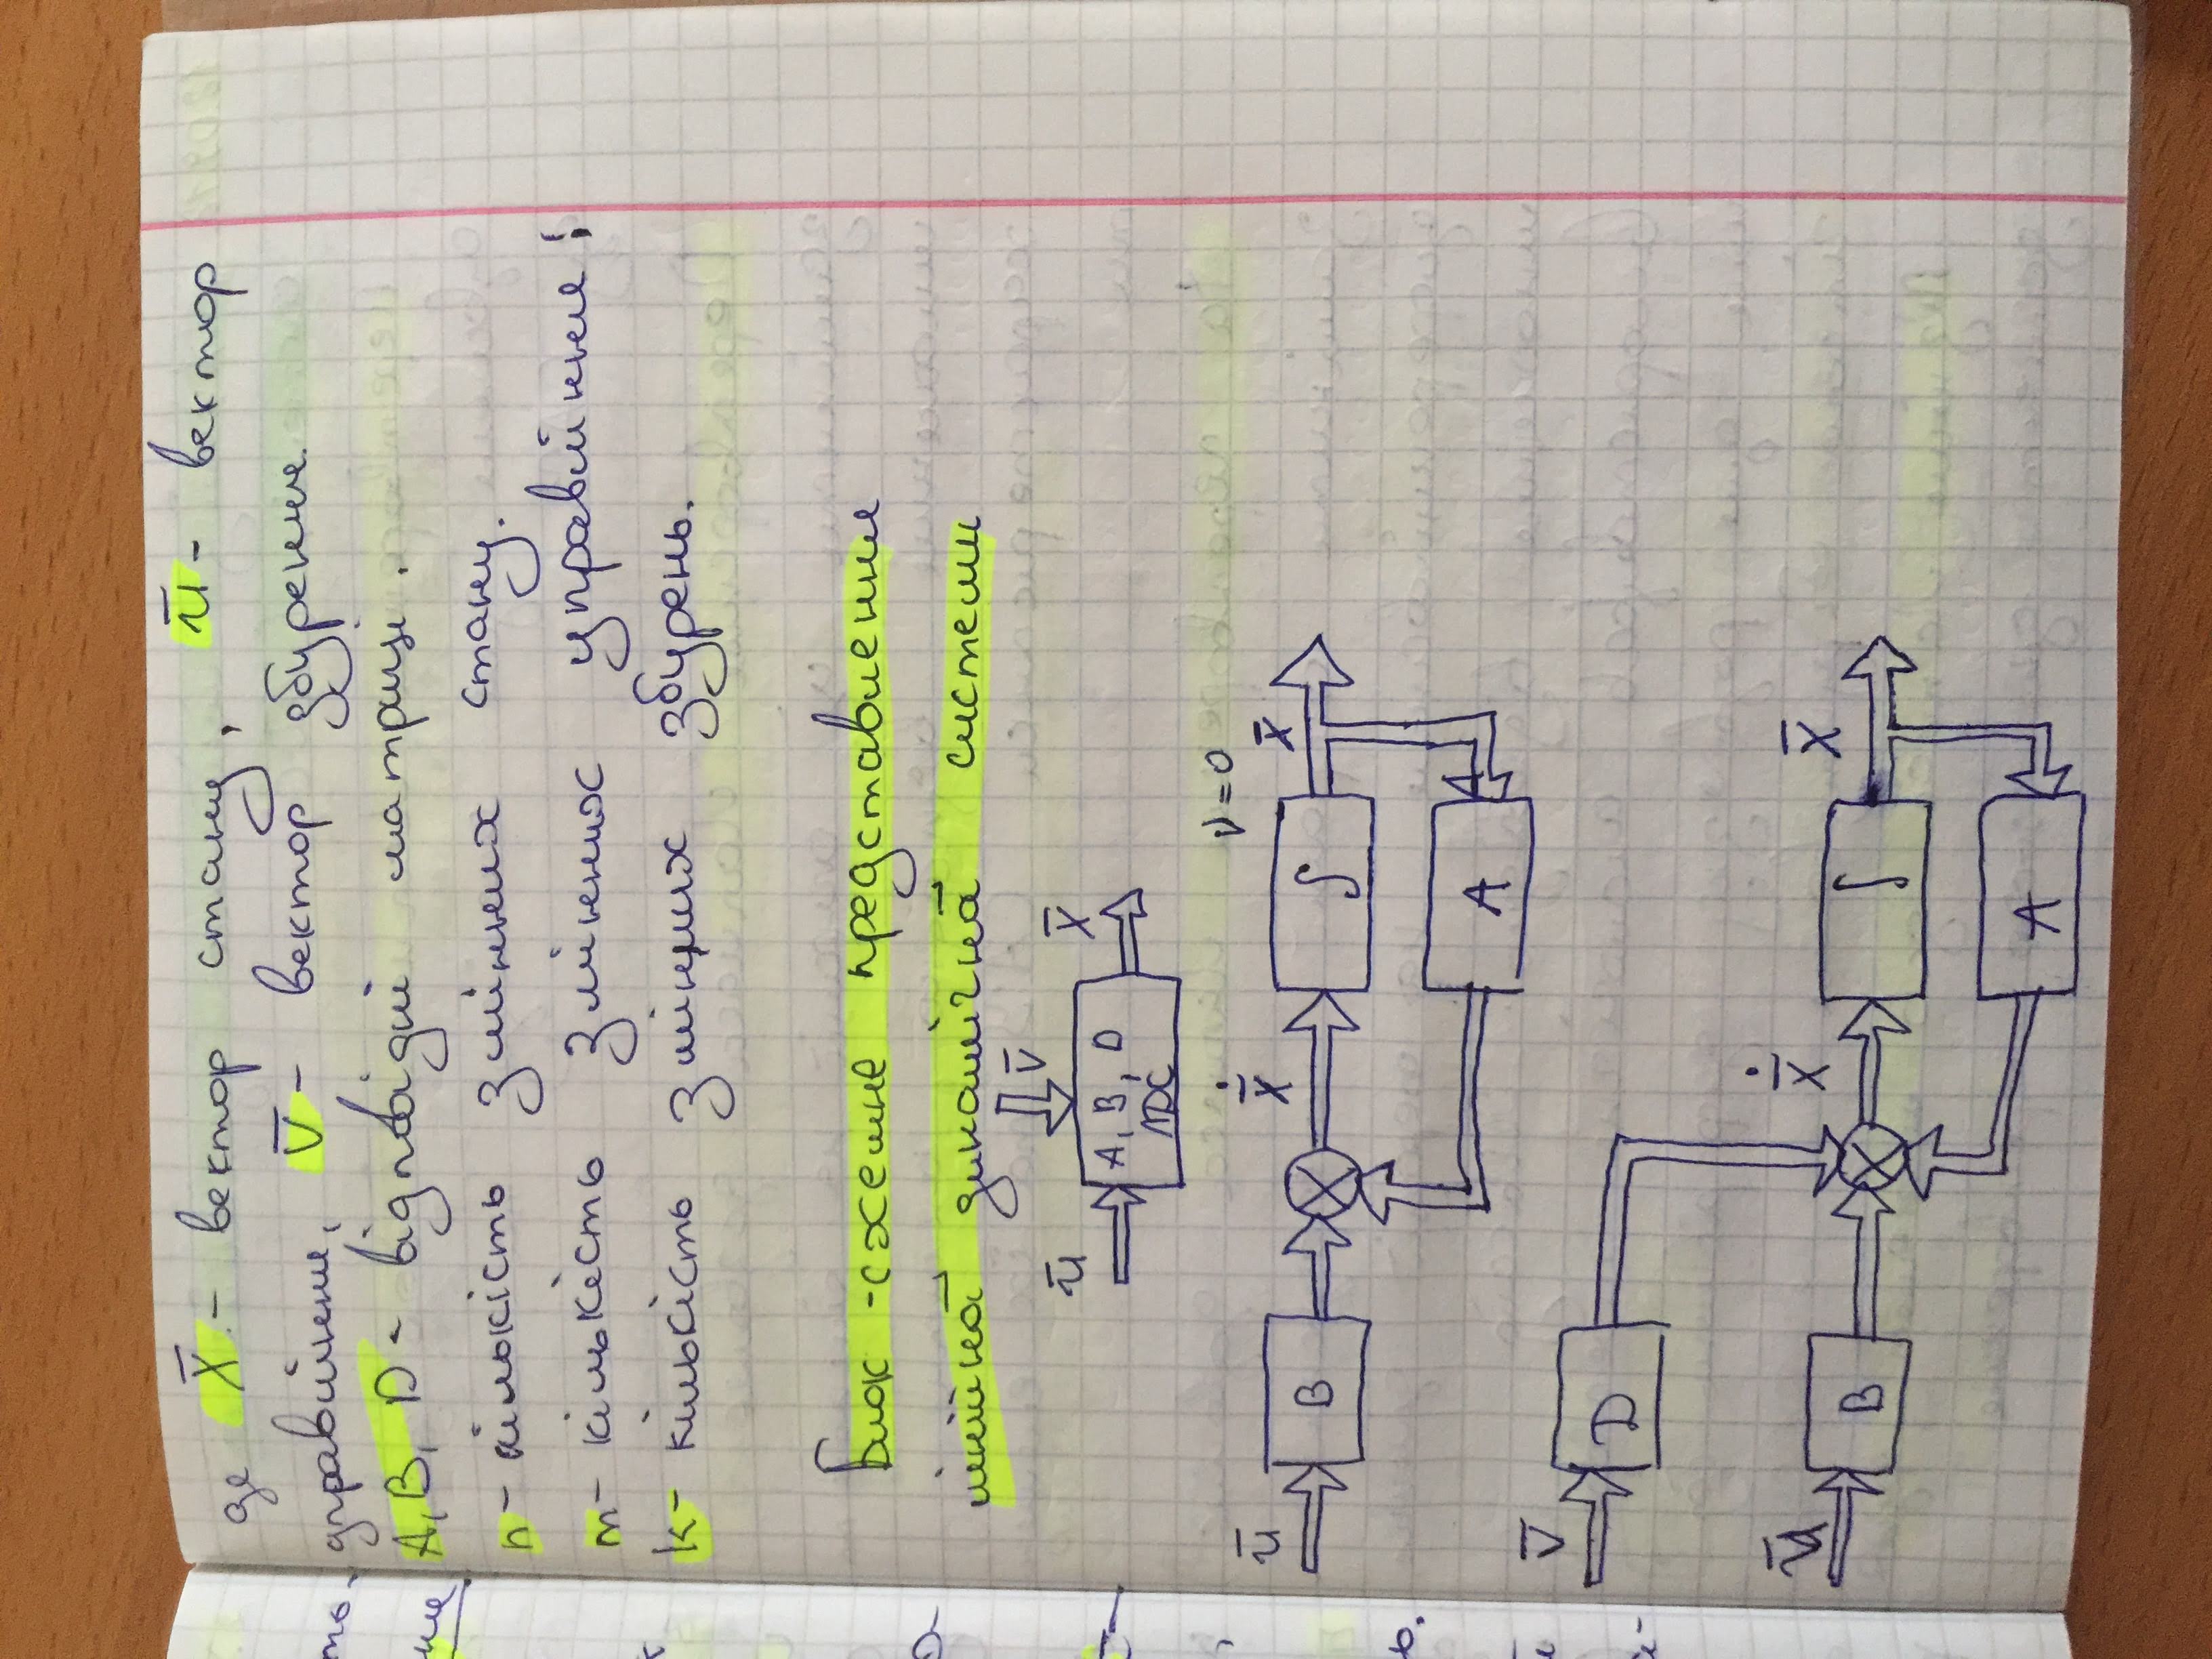 де X̅ - вектор стану, u̅ - вектор
управління, V̅ - вектор збурення.
A, B, D - відповідні матриці.
n - кількість змінних стану.
m - кількість змінних управління;
k - кількість змінних збурень.
Блок-схемне представлення
лінійної динамічної системи
V̅
u̅
X̅
A, B, D
ЛДС
ν = 0
u̅
B
Ẋ̅
∫
X̅
A
V̅
D
u̅
B
Ẋ̅
∫
X̅
A